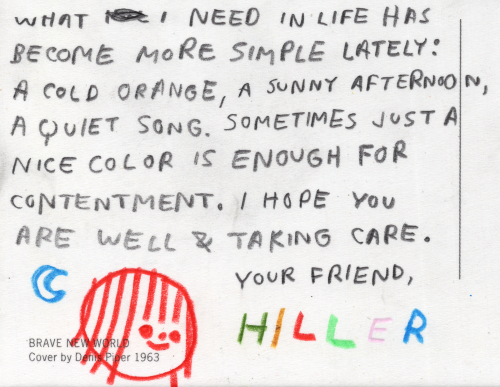 WHAT I NEED IN LIFE HAS
BECOME MORE SIMPLE LATELY:
A COLD ORANGE, A SUNNY AFTERNOON,
A QUIET SONG. SOMETIMES JUST A
NICE COLOR IS ENOUGH FOR
CONTENTMENT. I HOPE YOU
ARE WELL & TAKING CARE.
YOUR FRIEND,
HILLER
BRAVE NEW WORLD
Cover by Denis Piper 1963